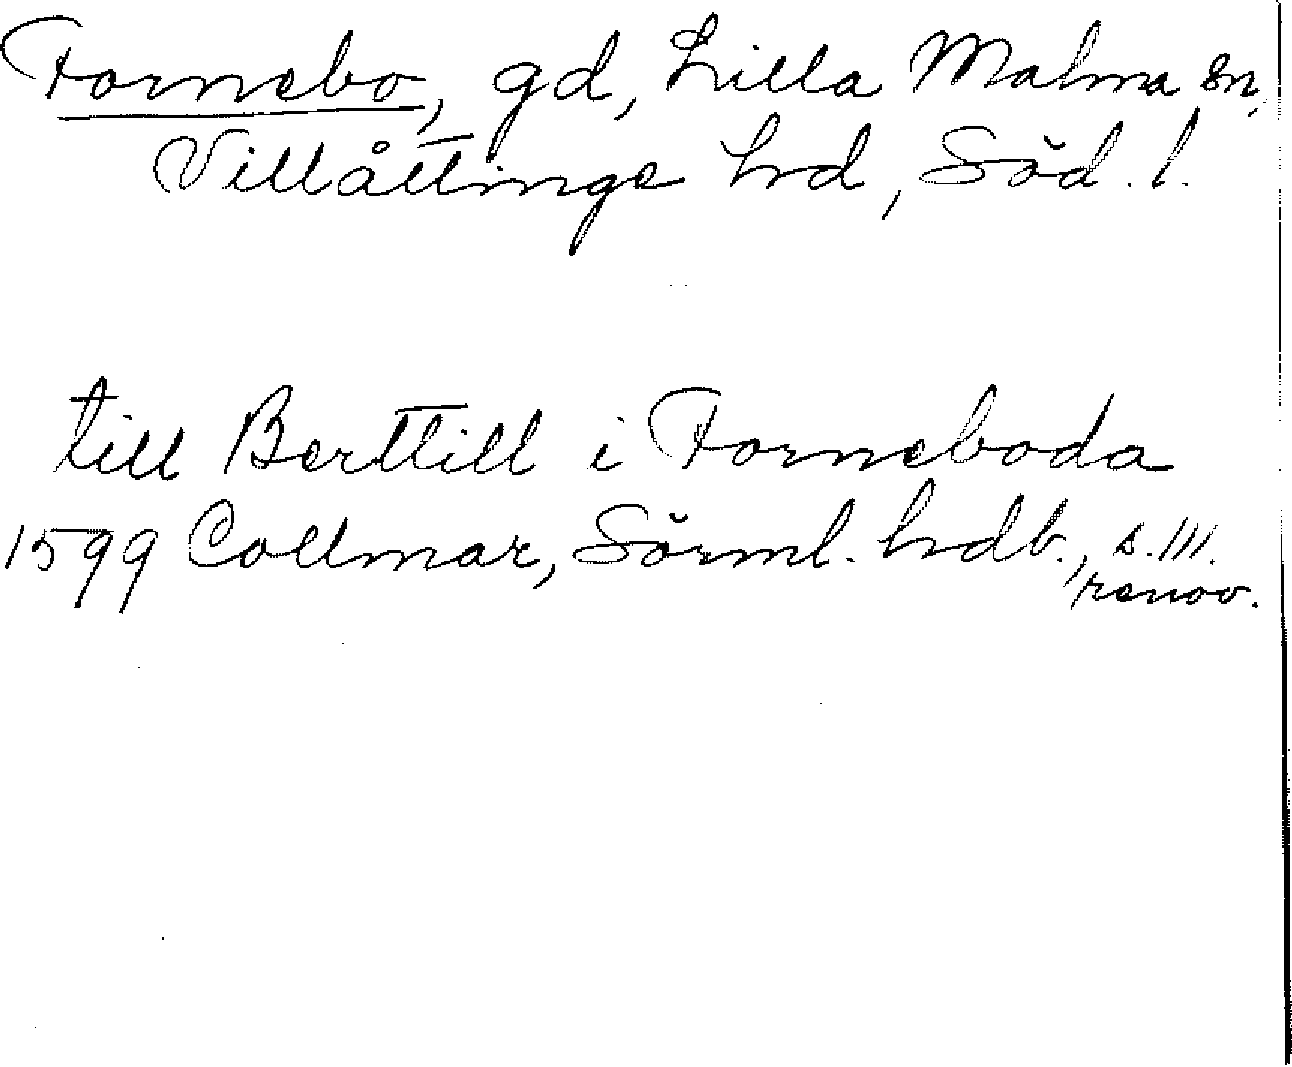 Fornebo, gd, Lilla Malma sn,
Villåttinge hrd, Söd. l.
till Berttill i Forneboda
1599 Collmar, Sörml. hrdb., s. 111.
renov.